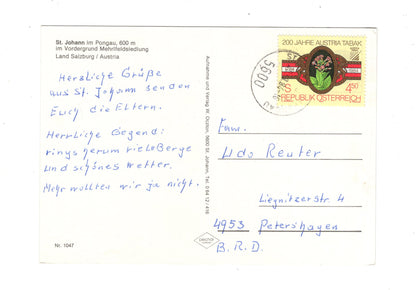 St. Johann im Pongau, 600 m
im Vordergrund Mehrlfeldsiedlung
Land Salzburg / Austria
Herzliche Grüße
aus St. Johann senden
Euch die Eltern.
Herrliche Gegend:
rings herum viele Berge
und schönstes Wetter.
Mehr wollten wir ja nicht.
Nr. 1047
Aufnahme und Verlag W. 5600 St. Johann, Tel. 0 64 12 / 416
200 JAHRE AUSTRIA TABAK
S 4,50
REPUBLIK ÖSTERREICH
5600
Fam.
Udo Reuter
Liegnitzerstr. 4
4953 Petershagen
B. R. D.